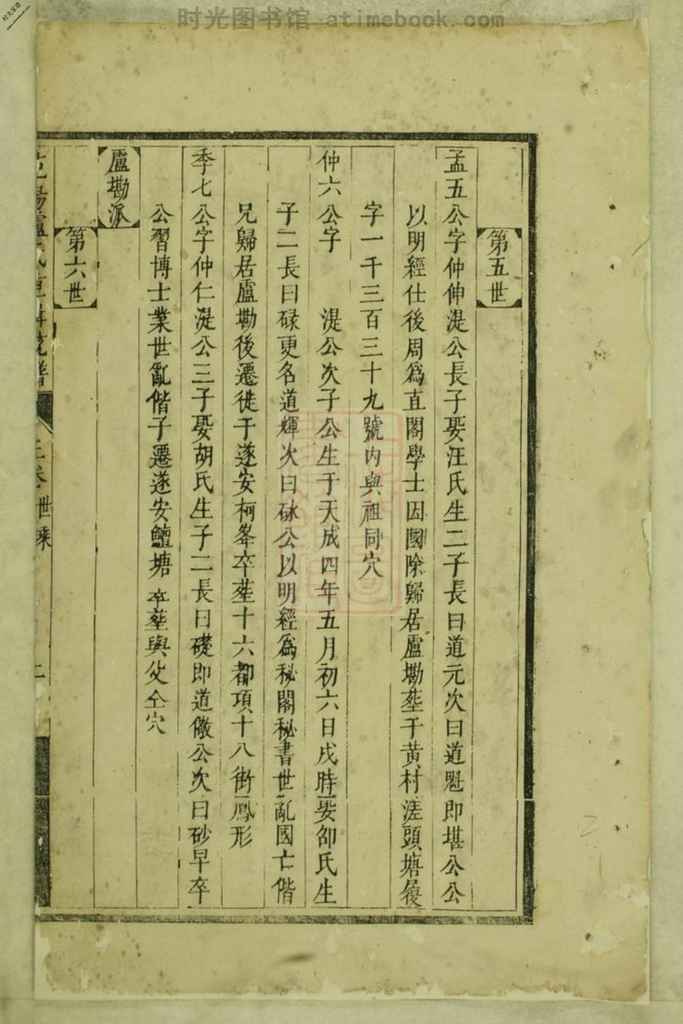 时光图书馆 atimebook.com
第五世
孟五公字仲伸湜公長子娶汪氏生二子長曰道元次曰道魁即堪公公
以明經仕後周爲直閣學士因國除歸居盧墈塟于黃村溠頭塘履
字一千三百三十九號内與祖同穴
仲六公字 湜公次子公生于天成四年五月初六日戌時娶邵氏生
子二長曰碌更名道輝次曰砅公以明經爲秘閣秘書世亂國亡偕
兄歸居盧墈後遷徙于遂安柯峯卒塟十六都項十八街鳳形
季七公字仲仁湜公三子娶胡氏生子二長曰礎即道儆公次曰砂早卒
公習博士業世亂偕子遷遂安鱸塘卒塟與父仝穴
盧墈派
第六世
世乘
二